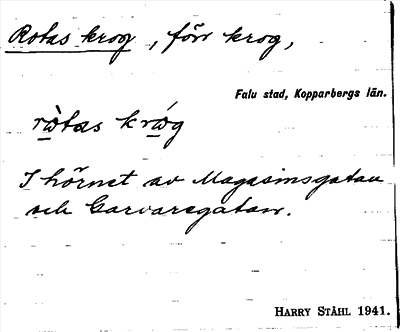 Rotas krog, förr krog,
Falu stad, Kopparbergs län.
ròtas króg
I hörnet av Magasinsgatan
och Garvaregatan.
HARRY STÅHL 1941.